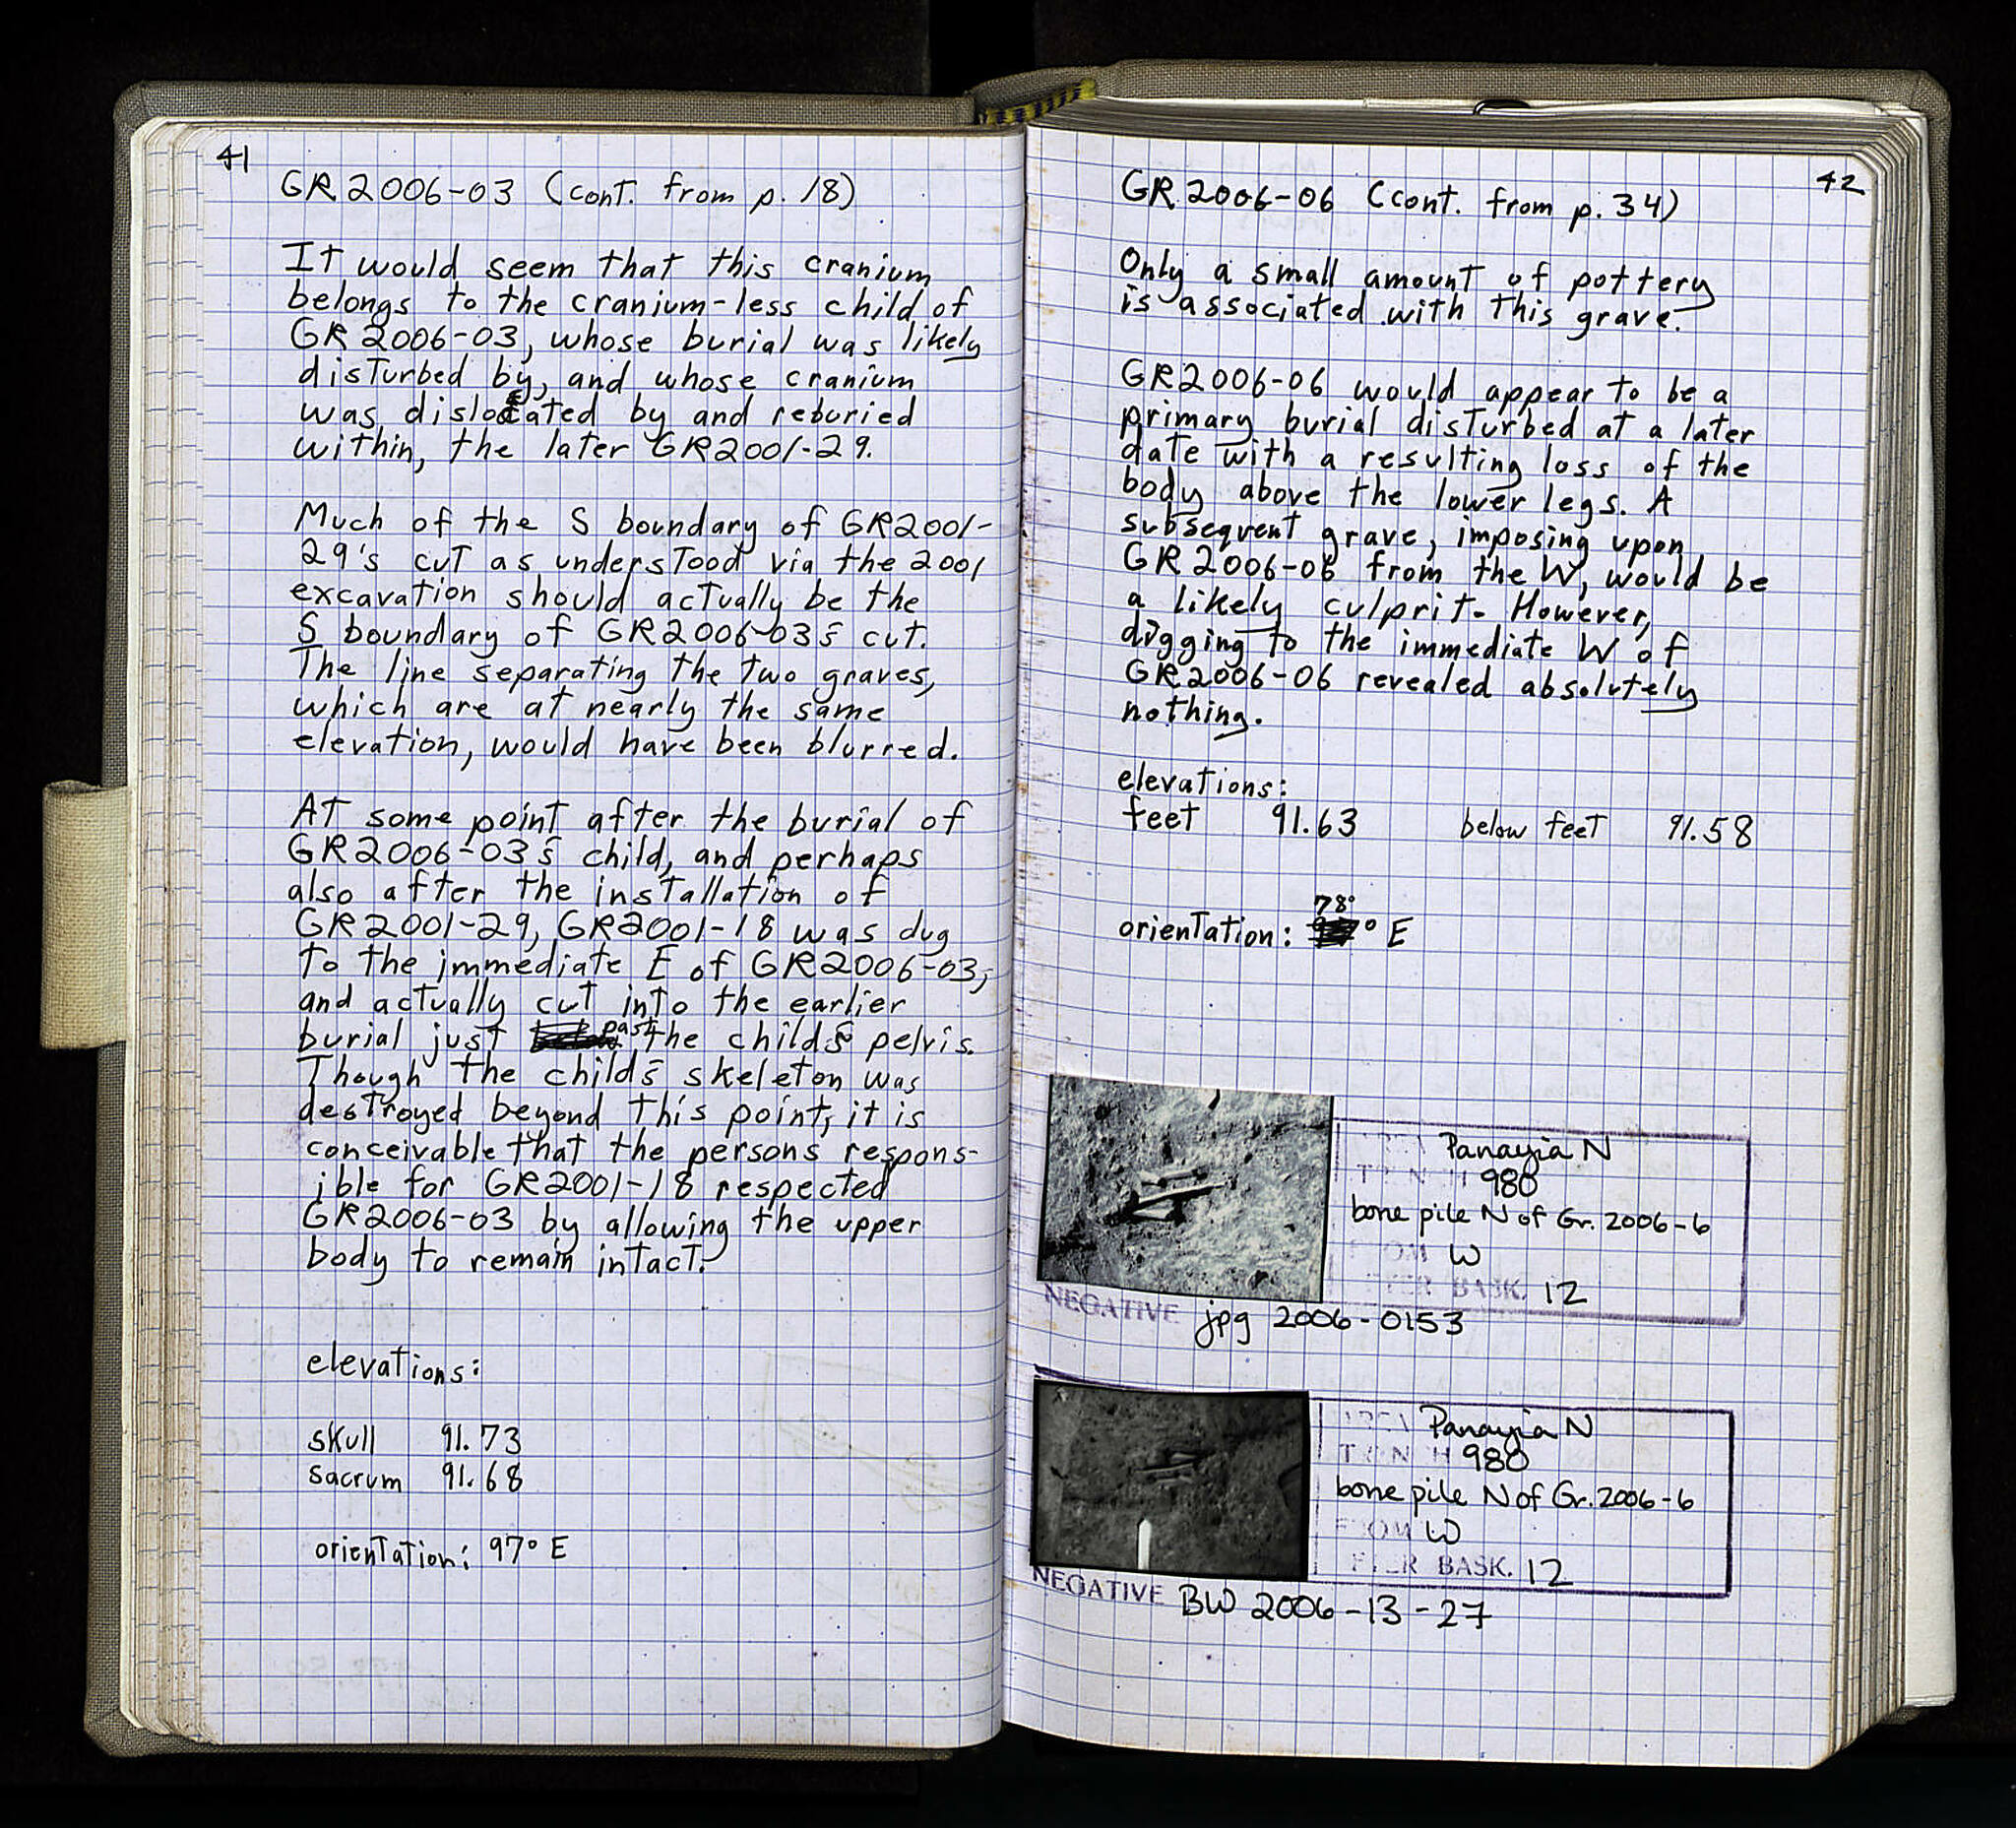 41
GR2006-03 (cont. from p. 18)
It would seem that this cranium
belongs to the cranium-less child of
GR2006-03, whose burial was likely
disturbed by, and whose cranium
was dislocated by and reburied
within, the later GR2001-29.
Much of the S boundary of GR2001-
29's cut as understood via the 2001
excavation should actually be the
S boundary of GR2006-03's cut.
The line separating the two graves,
which are at nearly the same
elevation, would have been blurred.
At some point after the burial of
GR2006-03's child, and perhaps
also after the installation of
GR2001-29, GR2001-18 was dug
to the immediate E of GR2006-03,
and actually cut into the earlier
burial just past the child's pelvis.
Though the child's skeleton was
destroyed beyond this point, it is
conceivable that the persons respons-
ible for GR2001-18 respected
GR2006-03 by allowing the upper
body to remain intact.
elevations:
skull 91.73
sacrum 91.68
orientation: 97° E
42
GR2006-06 (cont. from p. 34)
Only a small amount of pottery
is associated with this grave.
GR2006-06 would appear to be a
primary burial disturbed at a later
date with a resulting loss of the
body above the lower legs. A
subsequent grave, imposing upon
GR2006-06 from the W, would be
a likely culprit. However,
digging to the immediate W of
GR2006-06 revealed absolutely
nothing.
elevations:
feet 91.63 below feet 91.58
orientation: 78° ° E
Panayia N
TRENCH 980
bone pile N of Gr. 2006-6
FROM W
AFTER BASK. 12
NEGATIVE jpg 2006-0153
AREA Panayia N
TRENCH 980
bone pile N of Gr. 2006-6
FROM W
AFTER BASK. 12
NEGATIVE BW 2006-13-27